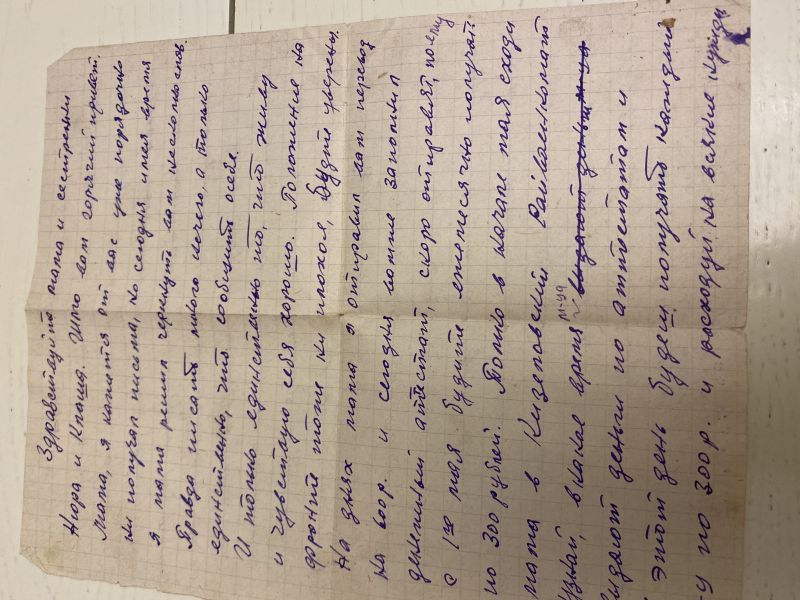 Здравствуйте мама и сестрёнки
Нюра и Клаша. Шлю вам горячий привет.
Мама, я кажется от вас уже порядочно
ни получал письма, но сегодня имея время
я мама решил черкнуть вам несколько слов.
Правда писать много нечего, а только
единственно, что сообщить о себе.
И только единственно то, что живу
и чувствую себя хорошо. Положение на
фронте тоже ни плохое, будте уверены.
На днях мама я отправил вам перевод
на 600р. и сегодня мама заполнил
денежный аттестат, скоро отправлю, по нему
с 1го мая будите ежемесячно получать
по 300 рублей. Только в начале мая сходи
мама в Кизеловский Райвоенкомат
узнай, в какое время м-ца
выдают деньги по аттестатам и
этот день будеш получать каждый
по 300р. и расходуй на всякие нужды